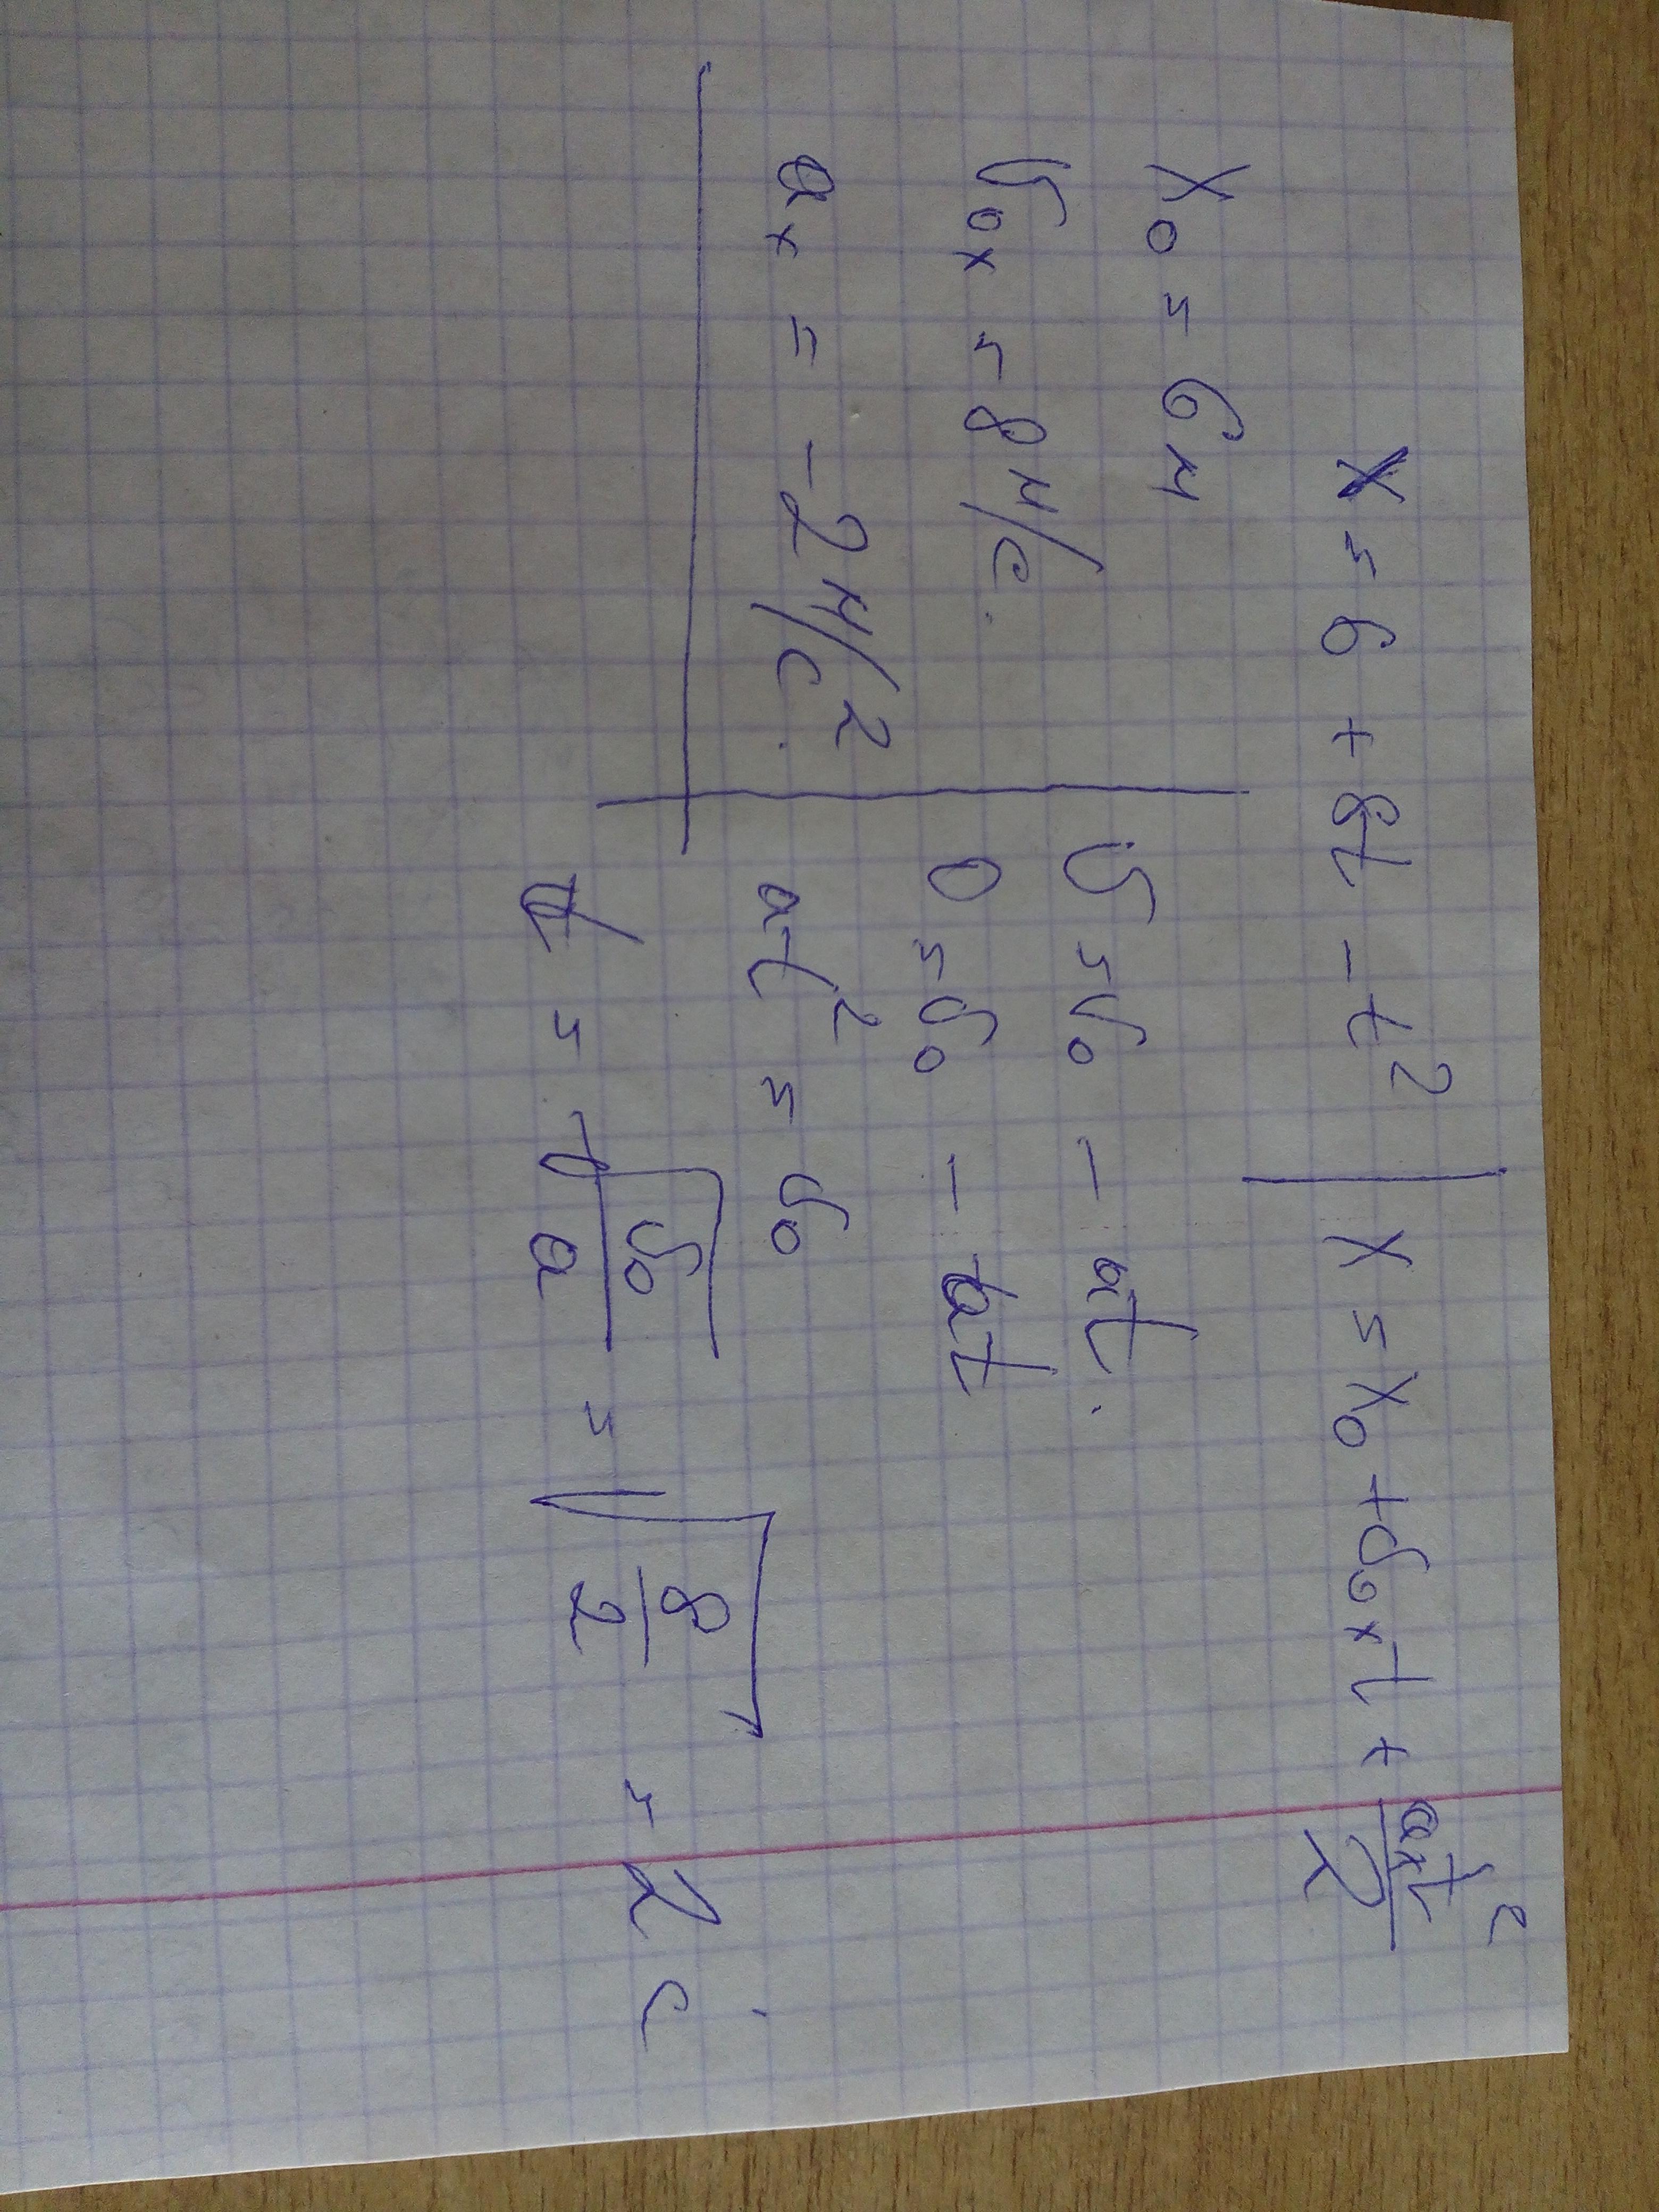 x = 6 + 8t - t² | x = x₀ + v₀ₓt + aₓt²/2
x₀ = 6 м
v₀ₓ = 8 м/с.
aₓ = -2 м/с².
v = v₀ - at.
0 = v₀ - at
at² = v₀
t = √(v₀/a) = √(8/2) = 2 с.